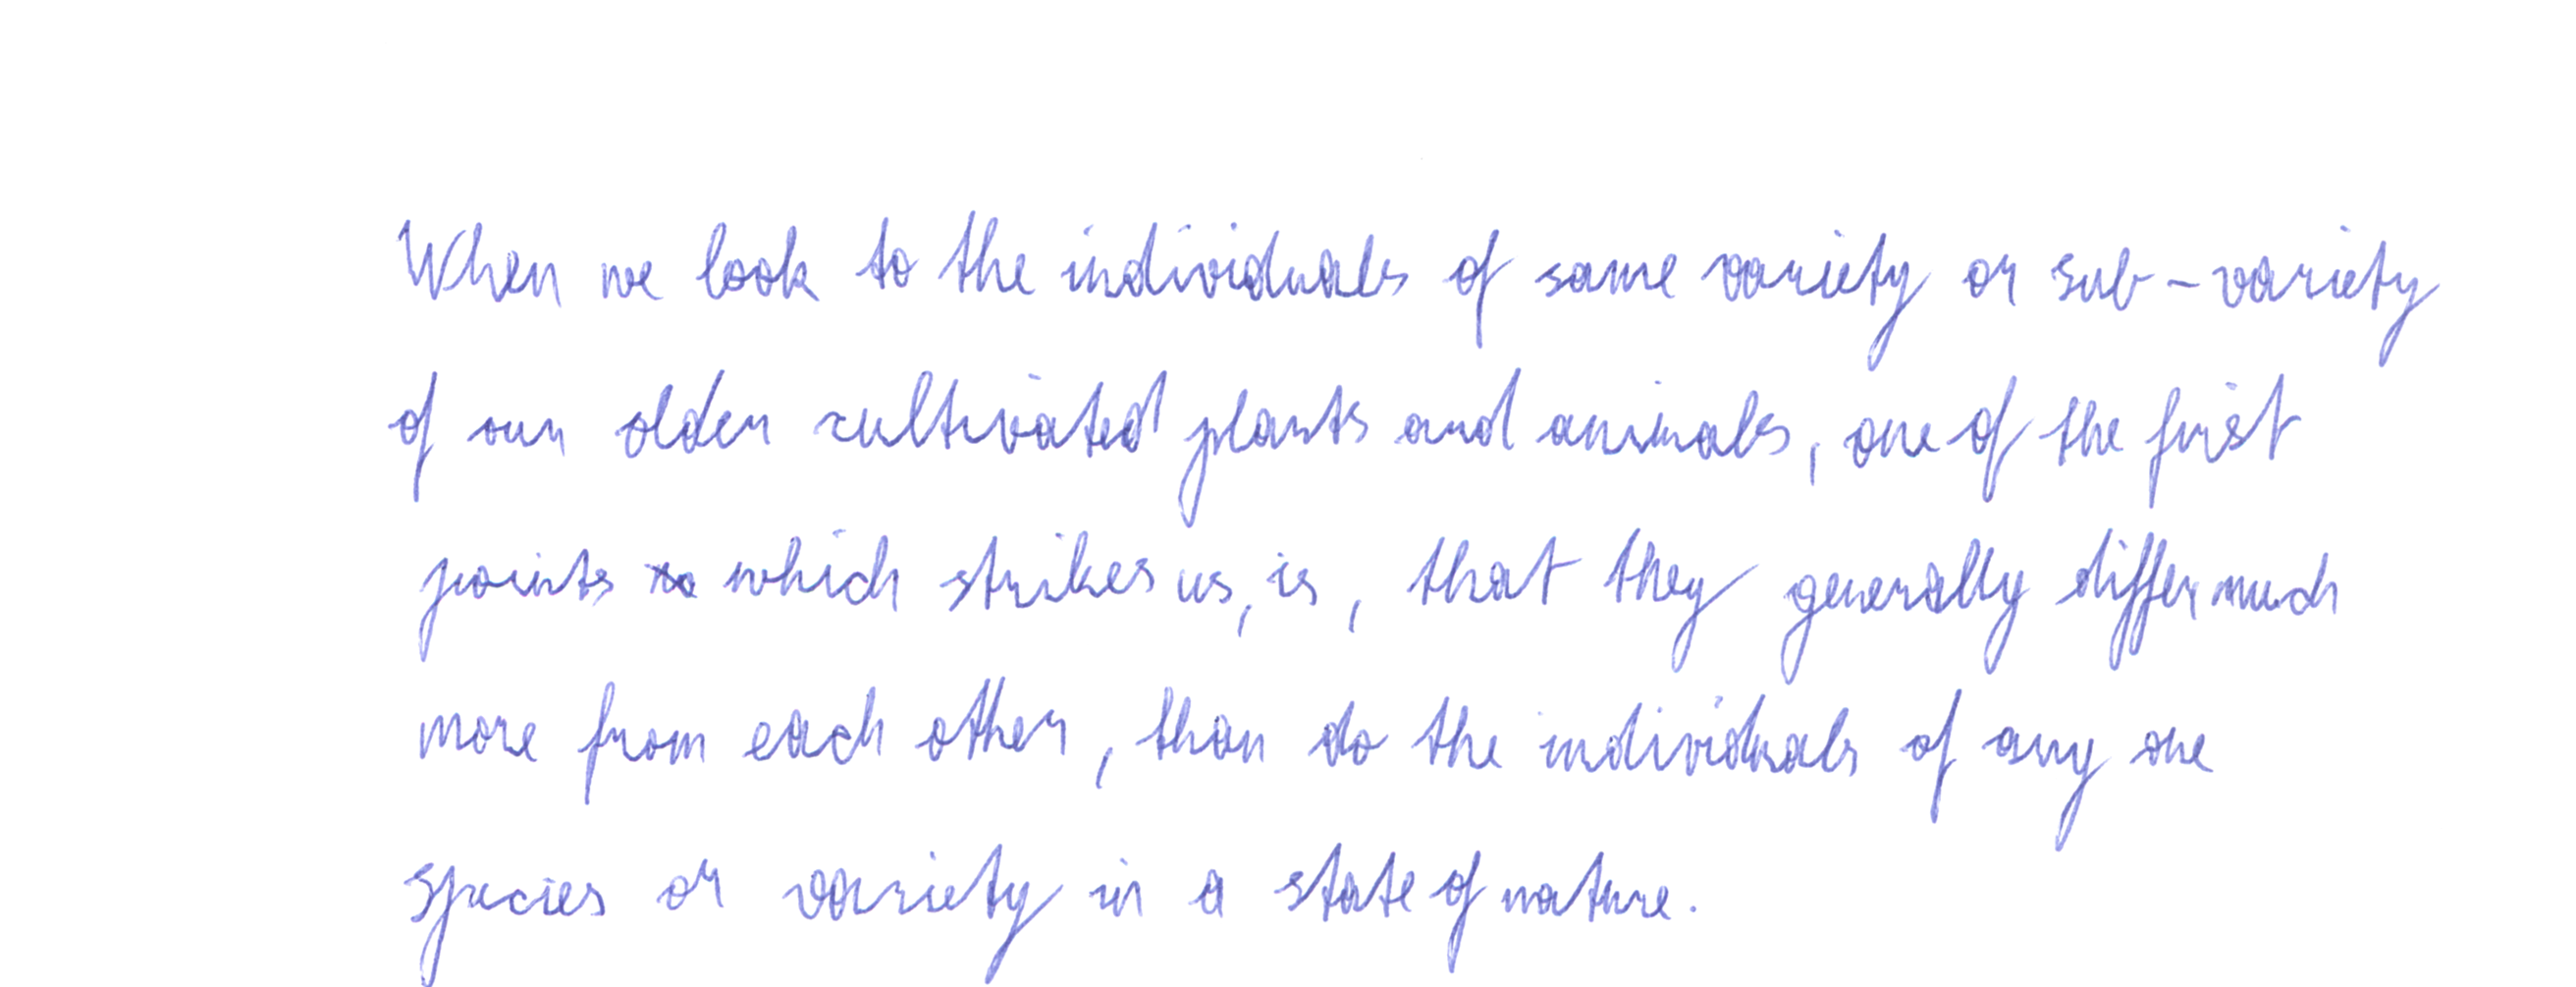 When we look to the individuals of same variety or sub-variety
of our older cultivated plants and animals, one of the first
points which strikes us, is, that they generally differ much
more from each other, than do the individuals of any one
species or variety in a state of nature.